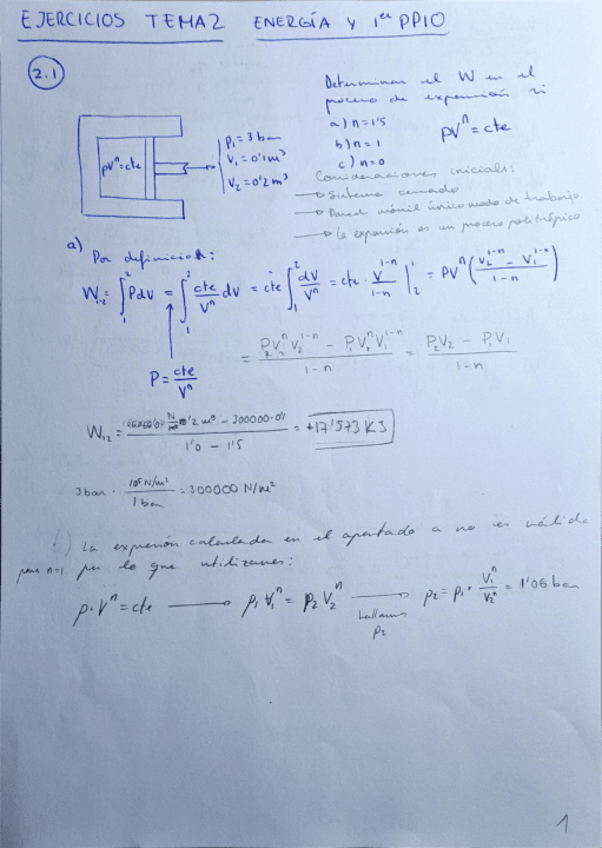 EJERCICIOS TEMA2 ENERGÍA Y 1er PPIO
2.1
Determinar el W en el
proceso de expansión si
a) n=1'5
b) n=1
c) n=0
pVⁿ=cte
pVⁿ=cte
P₁= 3 bar
V₁= 0'1m³
V₂=0'2m³
Consideraciones iniciales:
→ Sistema cerrado
→ Pared móvil único modo de trabajo
→ La expansión es un proceso politrópico
a) Por definición:
W₁₂ = ∫₁² Pdv = ∫₁² cte/Vⁿ dv = cte ∫₁² dV/Vⁿ = cte · V¹⁻ⁿ/1-n |₁² = PVⁿ (V₂¹⁻ⁿ - V₁¹⁻ⁿ / 1-n)
P= cte/Vⁿ
= P₂V₂ⁿV₂¹⁻ⁿ - P₁V₁ⁿV₁¹⁻ⁿ / 1-n = P₂V₂ - P₁V₁ / 1-n
W₁₂ = 0'2 m³ - 300000·0'1 / 1'0 - 1'5 = +17'573 KJ
3 bar · 10⁵ N/m² / 1 bar = 300000 N/m²
b) La expresión calculada en el apartado a no es válida
para n=1 por lo que utilizamos:
p·Vⁿ=cte → p₁V₁ⁿ = p₂V₂ⁿ → p₂= p₁ · V₁ⁿ/V₂ⁿ = 1'06 bar
hallamos
p₂
1